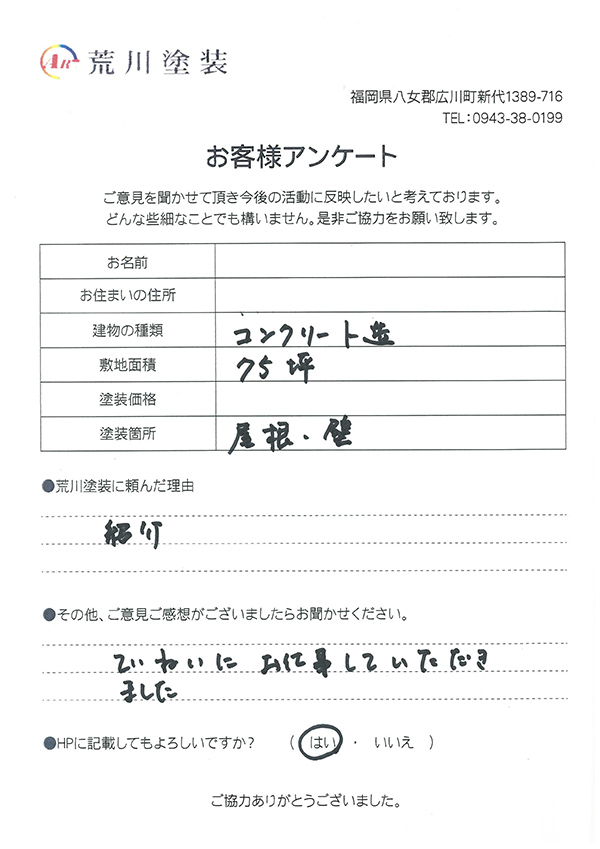 AR 荒川塗装
福岡県八女郡広川町新代1389-716
TEL:0943-38-0199
お客様アンケート
ご意見を聞かせて頂き今後の活動に反映したいと考えております。
どんな些細なことでも構いません。是非ご協力をお願い致します。
お名前
お住まいの住所
建物の種類 コンクリート造
敷地面積 75坪
塗装価格
塗装箇所 屋根・壁
●荒川塗装に頼んだ理由
紹介
●その他、ご意見ご感想がございましたらお聞かせください。
ていねいに お仕事していただき
ました
●HPに記載してもよろしいですか? ( はい ・ いいえ )
ご協力ありがとうございました。